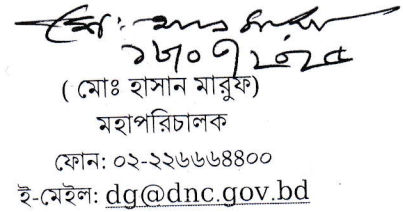 ( মোঃ হাসান মারুফ)
মহাপরিচালক
ফোন: ০২-২২৬৬৬৪৪০০
ই-মেইল: dg@dnc.gov.bd